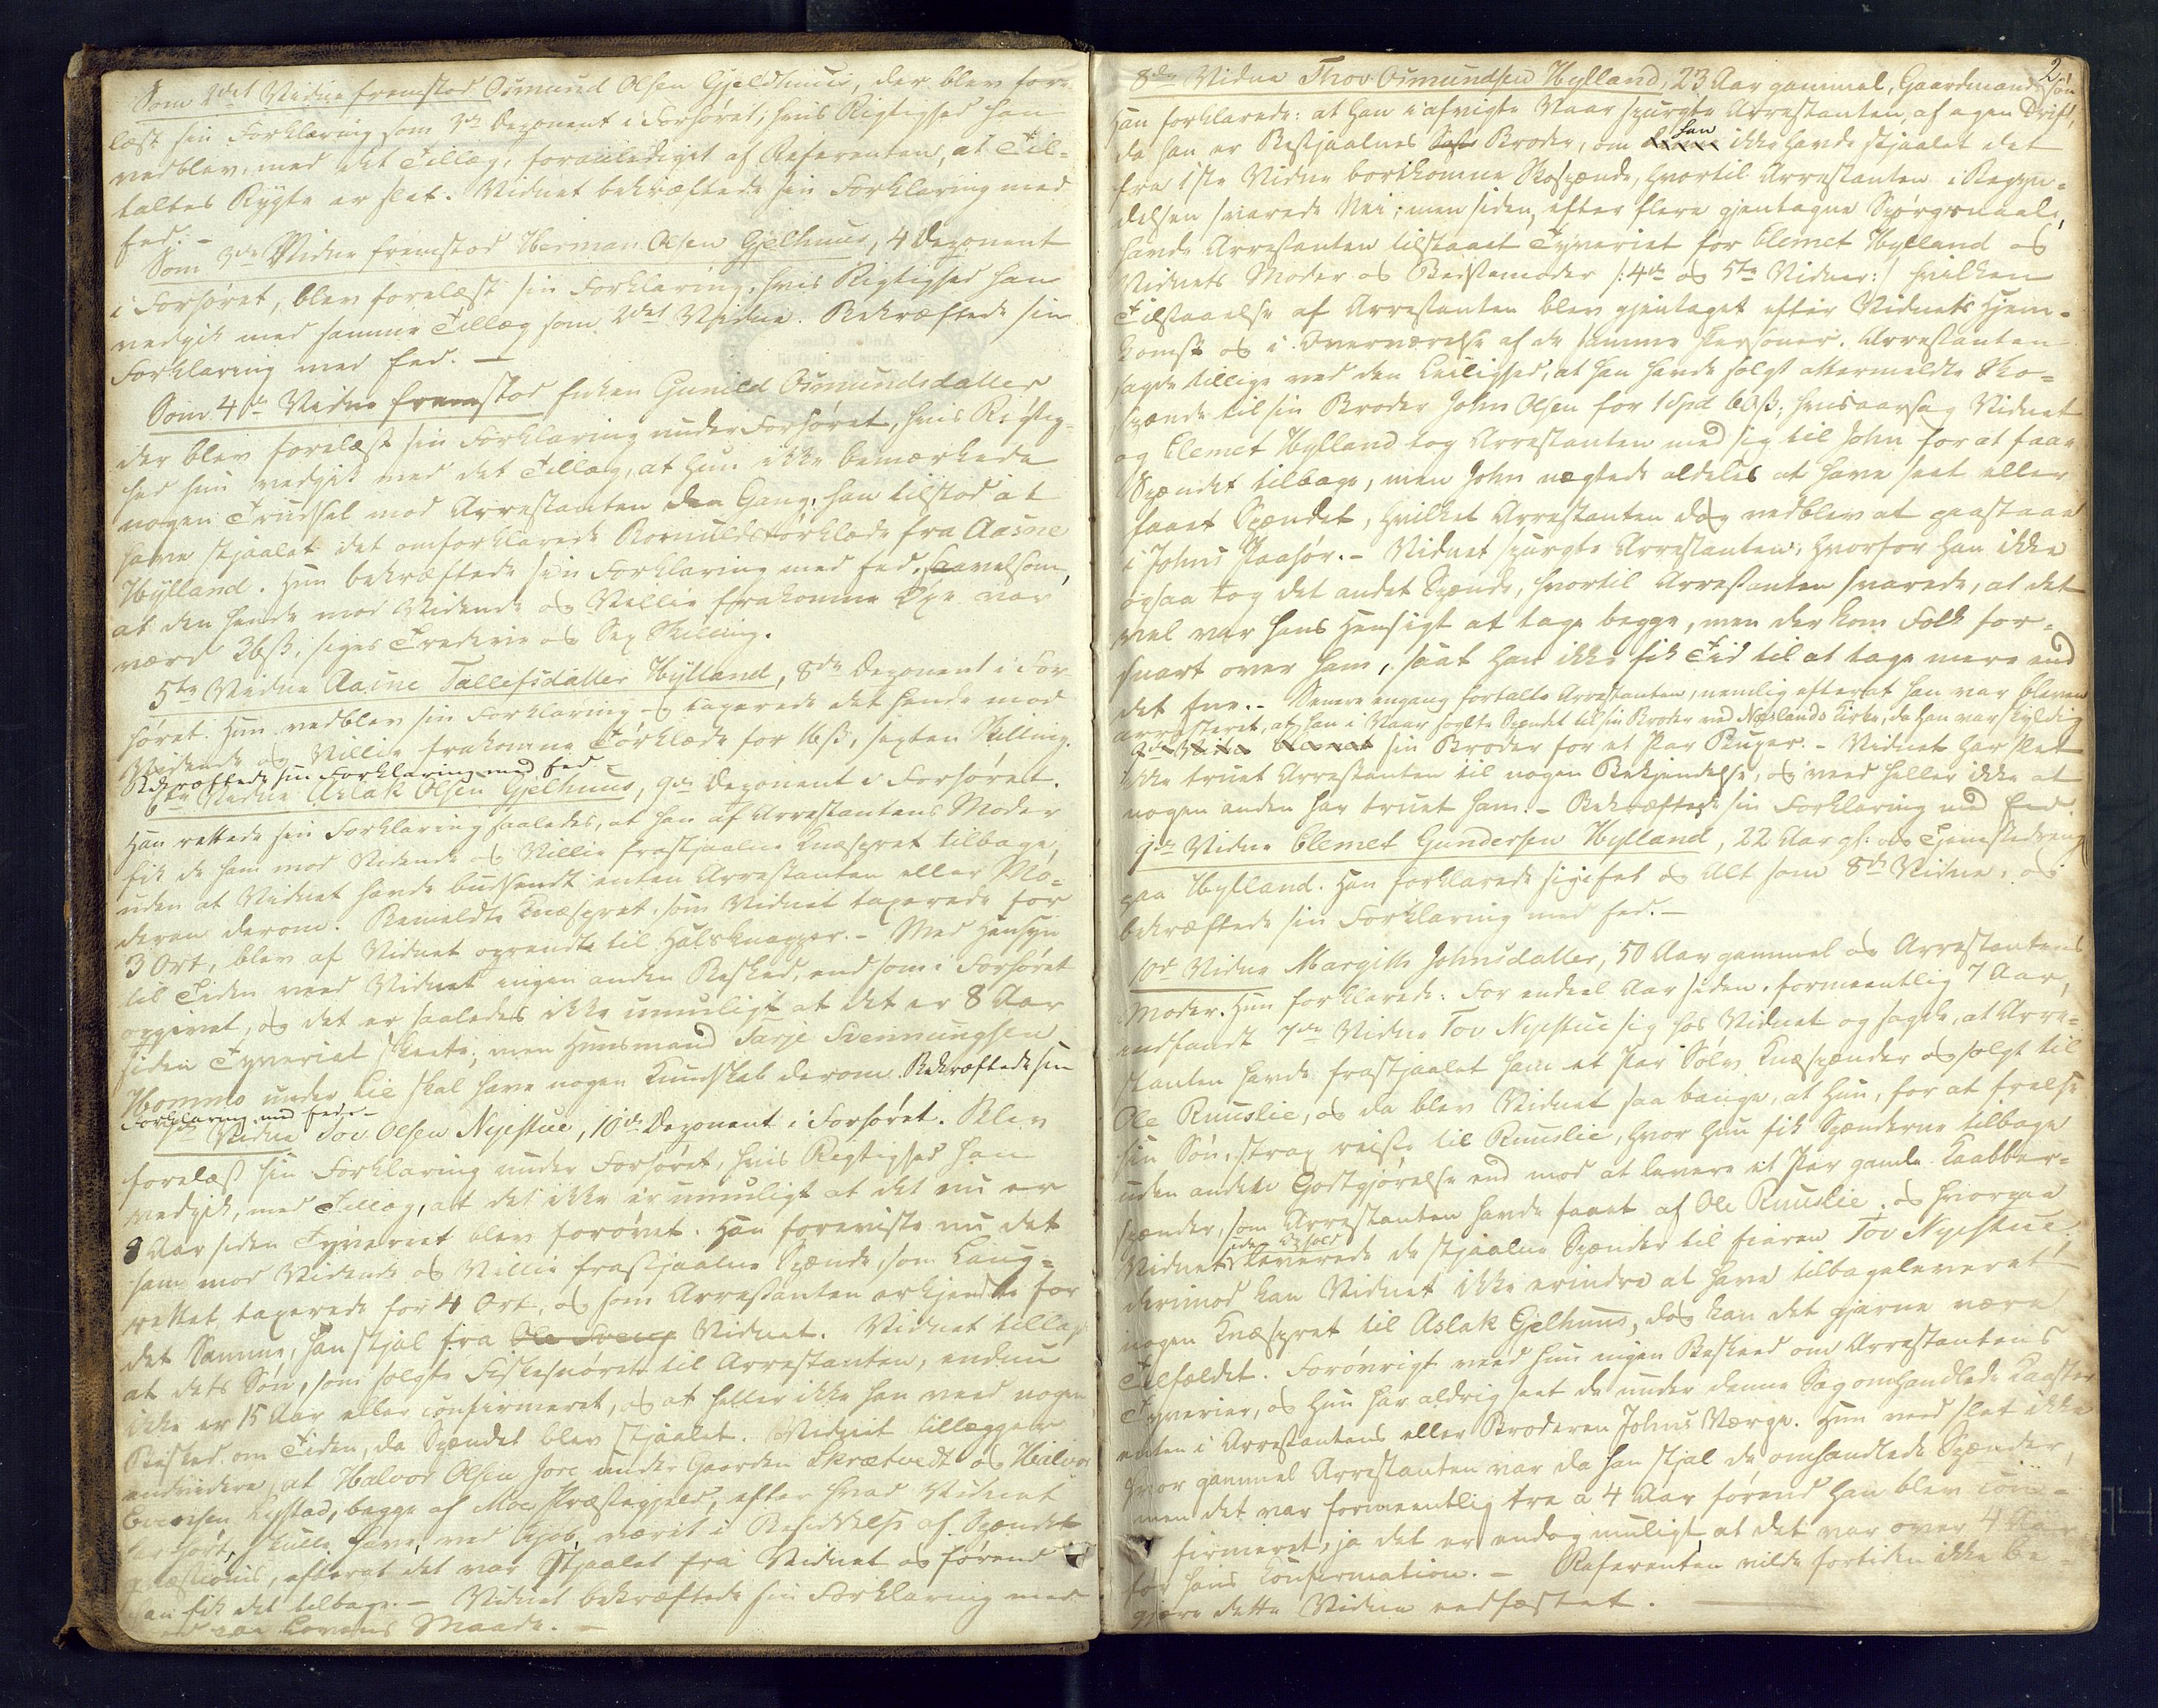 Som 2det Vidne fremstod Osmund Olsen Gjeldhuus, der blev fore-
læst sin Forklaring som 3die Deponent i Forhøret, hvis Rigtighed han
vedblev, med det Tillæg, foranlediget af Referenten, at Til-
taltes Rygte er slet. Vidnet bekræftede sin Forklaring med
Eed. -
Som 3die Vidne fremstod Herman Olsen Gjelhuus, 4 Deponent
i Forhøret, blev forelæst sin Forklaring, hvis Rigtighed han
vedgik med samme Tillæg som 2det Vidne. Bekræftede sin
Forklaring med Eed. -
Som 4de Vidne fremstod Enken Gunild Osmundsdatter
der blev forelæst sin Forklaring under Forhøret, hvis Rigtig-
hed hun vedgik med det Tillæg, at hun ikke bemærkede
nogen Trudsel mod Arrestanten den Gang, han tilstod at
have stjaalet det omforklarede Bomuldstørklæde fra Aasne
Hylland. Hun bekræftede sin Forklaring med Eed, saavelsom,
at den hende mod Vidende og Villie frakomne Øxe var
værd 36ß, siger Tredive og Sex Skilling.
5te Vidne Aasne Tallefsdatter Hylland, 8de Deponent i For-
høret. Hun vedblev sin Forklaring og taxerede det hende mod
Vidende og Villie frakomne Tørklæde for 16ß, sexten Skilling.
Bekræftede sin Forklaring med Eed -
6te Vidne Aslak Olsen Gjelhuus, 9de Deponent i Forhøret.
Han rettede sin Forklaring saaledes, at han af Arrestantens Moder
fik de ham mod Vidende og Villie frastjaalne Knæspæn­der tilbage,
uden at Vidnet havde budsendt enten Arrestanten eller Mo-
deren derom. Bemeldte, som Vidnet taxerede for
3 Ort, blev af Vidnet omvendte til Halsknapper. - Med Hensyn
til Tiden veed Vidnet ingen anden Besked, end som i Forhøret
opgivet, og det er saaledes ikke umuligt at det er 8 Aar
siden Tyveriet skeete; men Huusmand Tarje Svennungsen
Hommo under Lie skal have nogen Kundskab derom. Bekræftede sin
Forklaring med Eed. -
7de Vidne Tov Olsen Nyestue, 10de Deponent i Forhøret. Blev
forelæst sin Forklaring under Forhøret, hvis Rigtighed han
vedgik, med Tillæg, at det ikke er umuligt at det nu er
8 Aar siden Tyveriet blev forøvet. Han foreviste nu det
ham mod Vidende og Villie frastjaalne Spænde, som Laug-
rettet taxerede for 4 Ort, og som Arrestanten erkjendte for
det Samme, han stjal fra Vidnet. Vidnet tillagde
at dets Søn, som solgte Fiskesnøret til Arrestanten, endnu
ikke er 15 Aar eller confirmeret, og at heller ikke han veed nogen
Besked om Tiden, da Spændet blev stjaalet. Vidnet tillægger
endvidere, at Halvor Olsen Jore under Gaarden Skrætvedt og Halvor
Evensen Rystad, begge af Moe Præstegjeld, efter hvad Vidnet
har hørt, skulle have, ved Kjøb, været i Besiddelse af Spændet
, efterat det var stjaalet fra Vidnet og førend
han fik det tilbage. - Vidnet bekræftede sin Forklaring med
Eed paa Lovens Maade. -
2.
8de Vidne Thov Osmundsen Hylland, 23 Aar gammel, Gaardmandssøn
Han forklarede: at han i afvigte Vaar spurgte Arrestanten, af egen Drift,
da han er Bestjaalnes Broder, om han ikke havde stjaalet det
fra 1ste Vidne bortkomne Skospænde, hvortil Arrestanten i Begyn-
delsen svarede Nei; men siden, efter flere gjentagne Spørgsmaale,
havde Arrestanten tilstaaet Tyveriet for Clemet Hylland og
Vidnets Moder og Bedstemoder /: 4de og 5te Vidner :/ hvilken
Tilstaaelse af Arrestanten blev gjentaget efter Vidnets Hjem-
komst og i Overværelse af de samme Personer. Arrestanten
sagde tillige ved den Leilighed, at han havde solgt ommeldte Sko-
spænde til sin Broder John Olsen for 1 Spd 60ß; hvisaarsag Vidnet
og Clemet Hylland tog Arrestanten med sig til John for at faae
Spændet tilbage, men John nægtede aldeles at have seet eller
faaet Spændet, hvilket Arrestanten dog vedblev at paastaae
i Johns Paahør. - Vidnet spurgte Arrestanten, hvorfor han ikke
ogsaa tog det andet Spænde, hvortil Arrestanten svarede, at det
vel var hans Hensigt at tage begge, men der kom Folk for-
snart over ham, saa at han ikke fik Tid til at tage mere end
det Ene. - Senere engang fortalte Arrestanten, nemlig efterat han var bleven
arresteret, at han i Vaar solgte Spændet til sin Broder ved Næslands Kirke, da han var skyldig
sin Broder for et Par Buxer. - Vidnet har slet
ikke truet Arrestanten til nogen Bekjendelse, og veed heller ikke at
nogen anden har truet ham. - Bekræftede sin Forklaring med Eed
9de Vidne Clemet Gundersen Hylland, 22 Aar gl. og Tjenestedreng
paa Hylland. Han forklarede sig i Eet og Alt som 8de Vidne, og
bekræftede sin Forklaring med Eed. -
10de Vidne Margith Johnsdatter, 50 Aar gammel og Arrestantens
Moder. Hun forklarede: For endeel Aar siden, formeentlig 7 Aar,
indfandt 7de Vidne Tov Nyestue sig hos Vidnet og sagde, at Arre-
stanten havde frastjaalet ham et Par Sølv Knæspænder og solgt til
Ole Ruuslie, og da blev Vidnet saa bange, at hun, for at frelse
sin Søn, strax reiste til Ruuslie, hvor hun fik Spænderne tilbage
uden anden Godtgjørelse end mod at levere et Par gamle Kaabber-
spænder, som Arrestanten havde faaet af Ole Ruuslie, og hvorpaa
Vidnet leverede de stjaalne Spænder til Eieren Tov Nyestue.
derimod kan Vidnet ikke erindre at have tilbageleveret
nogen til Aslak Gjelhuus, dog kan det gjerne være
Tilfældet. Forøvrigt veed hun ingen Beskeed om Arrestantens
Tyverier, og hun har aldrig seet de under denne Sag omhandlede Kaaster
enten i Arrestantens eller Broderen Johns Værge. Hun veed slet ikke
hvor gammel Arrestanten var da han stjal de omhandlede Spænder,
men det var formeentlig tre a 4 Aar førend han blev con-
firmeret, ja det er endog muligt, at det var over 4 Aar
før hans Confirmation. - Referenten vilde fortiden ikke be-
gjære dette Vidne edfæstet.